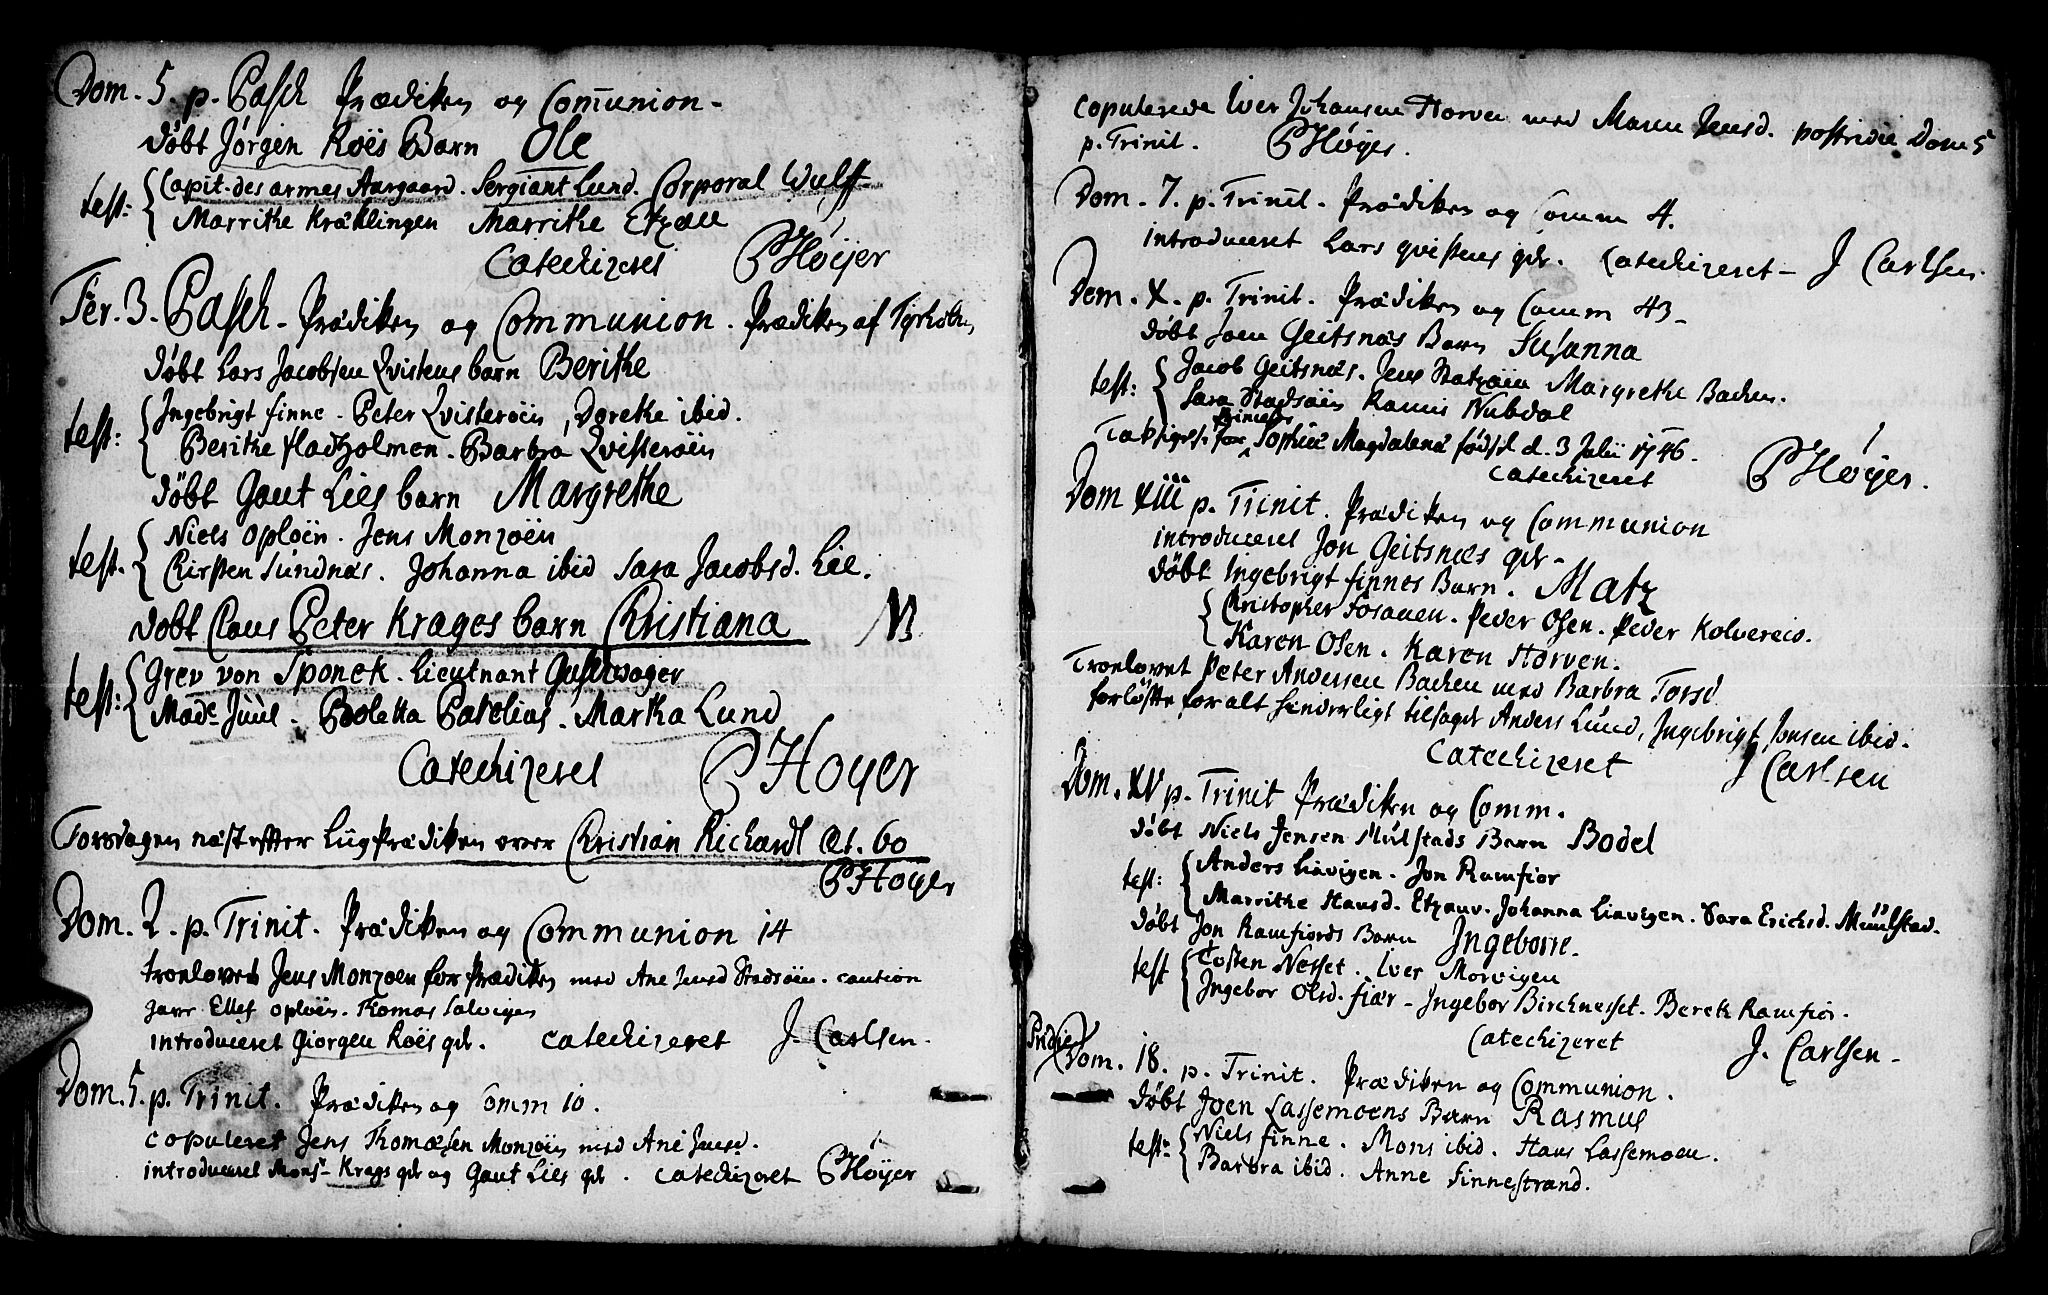 Dom. 5. p. Pasch Prædiken og Com̅union -
døbt Jørgen Røes Barn Ole
test: Capit. des armes Aargaard. Sergiant Lund. Corporal Wulff
Marrithe Kræklingen Marrithe Etzæu
Catechizeret PHøijer
Fer. 3. Pasch - Prædiken og Communion. Prædiken af Tyrholm
døbt Lars Jacobsen Qvistens barn Berithe
test: Ingebrigt finne - Peter Qvisterøen, Dorethe ibid.
Berithe Hadzolmen. Barbra Qvisterøen
døbt Gaut Lies barn Margrethe
test. Niels Opløen. Jens Monzøen
Kirsten Sundnæs. Johanna ibid Sara Jacobsd. Lie.
døbt Claus Peter Krages barn Christiana
test: Grev von Sponek. Lieutnant
Made Juul. Boletta Batelias. Martha Lund
Catechizeret PHøyer
Torsdagen næst effter Liigprædiken over Christian Richardt Æt. 60
PHøyer
Dom. 2. p. Trinit. Prædiken og Communion 14
troelovet Jens Monzøen for Prædiken med Ane Jensd Stadsøen. caution
Ellef Opløen. Thomas Salvigen
introduceret Giørgen Røes qde. catechizeret J. Carlsen.
Dom. 5. p. Trinit. Prædiken og Comm 10.
copuleret Jens Thomæsen Monzøen med Ane Jensd.
introduceret Monsr Krags qde og Gaut Lies qde. catechizeret PHøijer
copulerede Iver Johansen Horven med Maren Jensd. postridie Dom 5
p. Trinit. PHøyer.
Dom. 7. p. Trinit. Prædiken og Comm 4.
introduceret Lars qvistens qde. Catechizeret - J Carlsen.
Dom. X. p. Trinit. Prædiken og Comm 43 -
døbt Joen Geitsnæs Barn Susanna
test: Jacob Geitsnæs. Jens Statzøen Margrethe Bachen.
Sara Stadsøen Nubdal
Taksigels. for Princess Sophiæ Magdalenæ fødsel d. 3 Julii 1746.
catechizeret PHøijer.
Dom XIII p. Trinit. Prædiken og Communion
introduceret Jon Geitsnæs qde -
døbt Ingebrigt finnes Barn. Matz
Christopher Fosauen. Peder Olsen. Peder Kolvereid.
Karen Olsen. Karen Horven.
Troelovet Peter Andersen Bachen med Barbra Torsd
forløffte for alt hinderligt tilsagde Anders Lund, Ingebrigt Jonsen ibid.
Catechizeret J Carlsen
Dom. XV p. Trinit Prædiken og Comm.
døbt Niels Jensen Mulstads Barn Bodel
test: Anders Liavigen. Jon Ramfior
Marrithe Hansd. Etzauv. Johanna Liavigen. Sara Ericksd. Muulstad.
døbt Jon Ramfiords Barn Ingeborre.
test Tosten Nesset. Iver Morvigen
Ingebor Olsd. fiær - Ingebor Birchnesset. Bereth Ramfior.
Catechizeret J. Carlsen -
Pridie Dom. 18. p. Trinit. Prædiken og Communion.
døbt Joen Lassemoens Barn Rasmus
test: Niels finne. Mons ibid. Hans Lassemoen.
Barbra ibid. Anne Finnestrand.